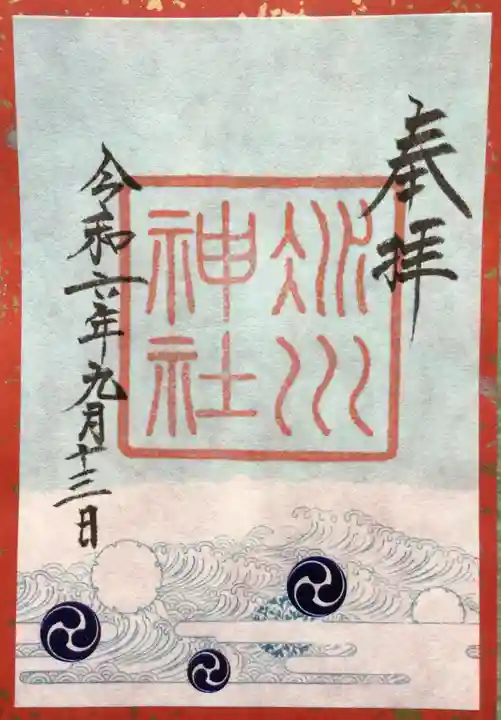 奉拝
冰川
神社
令和六年九月十三日